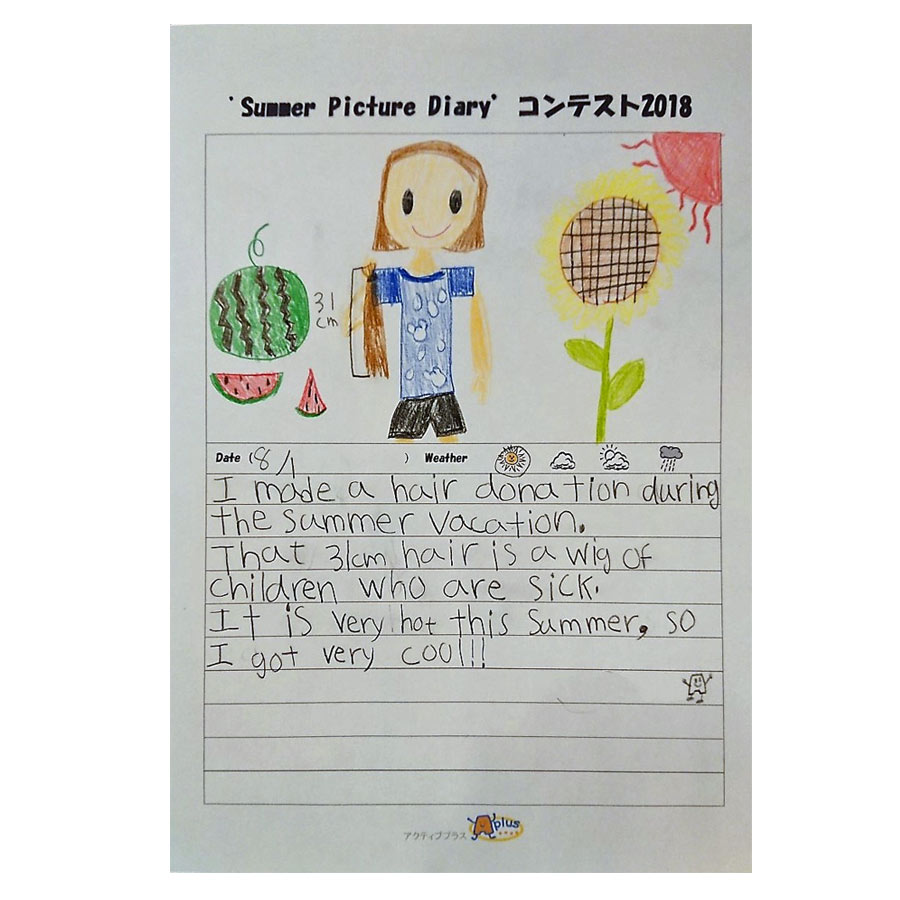 'Summer Picture Diary' コンテスト2018
31
cm
Date (8/1 ) Weather
I made a hair donation during
the summer vacation.
That 31cm hair is a wig of
children who are sick.
It is very hot this summer, so
I got very cool!!
アクティブプラス A plus